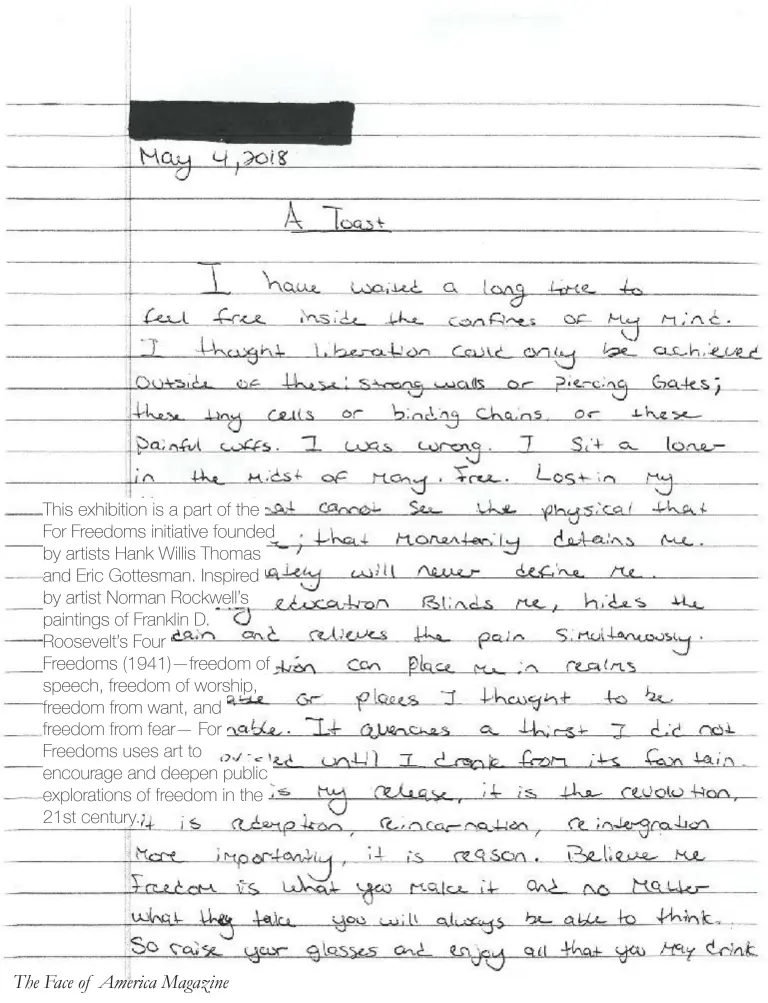 May 4, 2018
A Toast
I have waited a long time to
feel free inside the confines of my mind.
I thought liberation could only be achieved
outside of these strong walls or piercing gates;
these tiny cells or binding chains or these
painful cuffs. I was wrong. I sit a lone
in the midst of many. Free. Lost in my
cannot see the physical that
; that momentarily detains me.
will never define me.
education Blinds me, hides the
and relieves the pain simultaneously.
can place me in realms
or places I thought to be
. It quenches a thirst I did not
until I drank from its fantain.
is my release, it is the revolution,
it is redemption, reincarnation, reintergration
more importantly, it is reason. Believe me
Freedom is what you make it and no matter
what they take you will always be able to think.
So raise your glasses and enjoy all that you may drink
This exhibition is a part of the
For Freedoms initiative founded
by artists Hank Willis Thomas
and Eric Gottesman. Inspired
by artist Norman Rockwell's
paintings of Franklin D.
Roosevelt's Four
Freedoms (1941)—freedom of
speech, freedom of worship,
freedom from want, and
freedom from fear— For
Freedoms uses art to
encourage and deepen public
explorations of freedom in the
21st century.
The Face of America Magazine